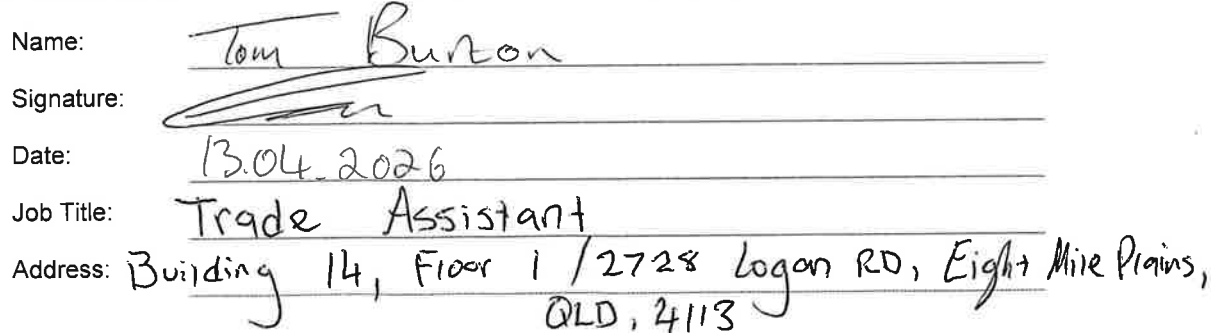 Name: Tom Burton
Signature:
Date: 13.04.2026
Job Title: Trade Assistant
Address: Building 14, Floor 1 / 2728 Logan RD, Eight Mile Plains,
QLD, 4113